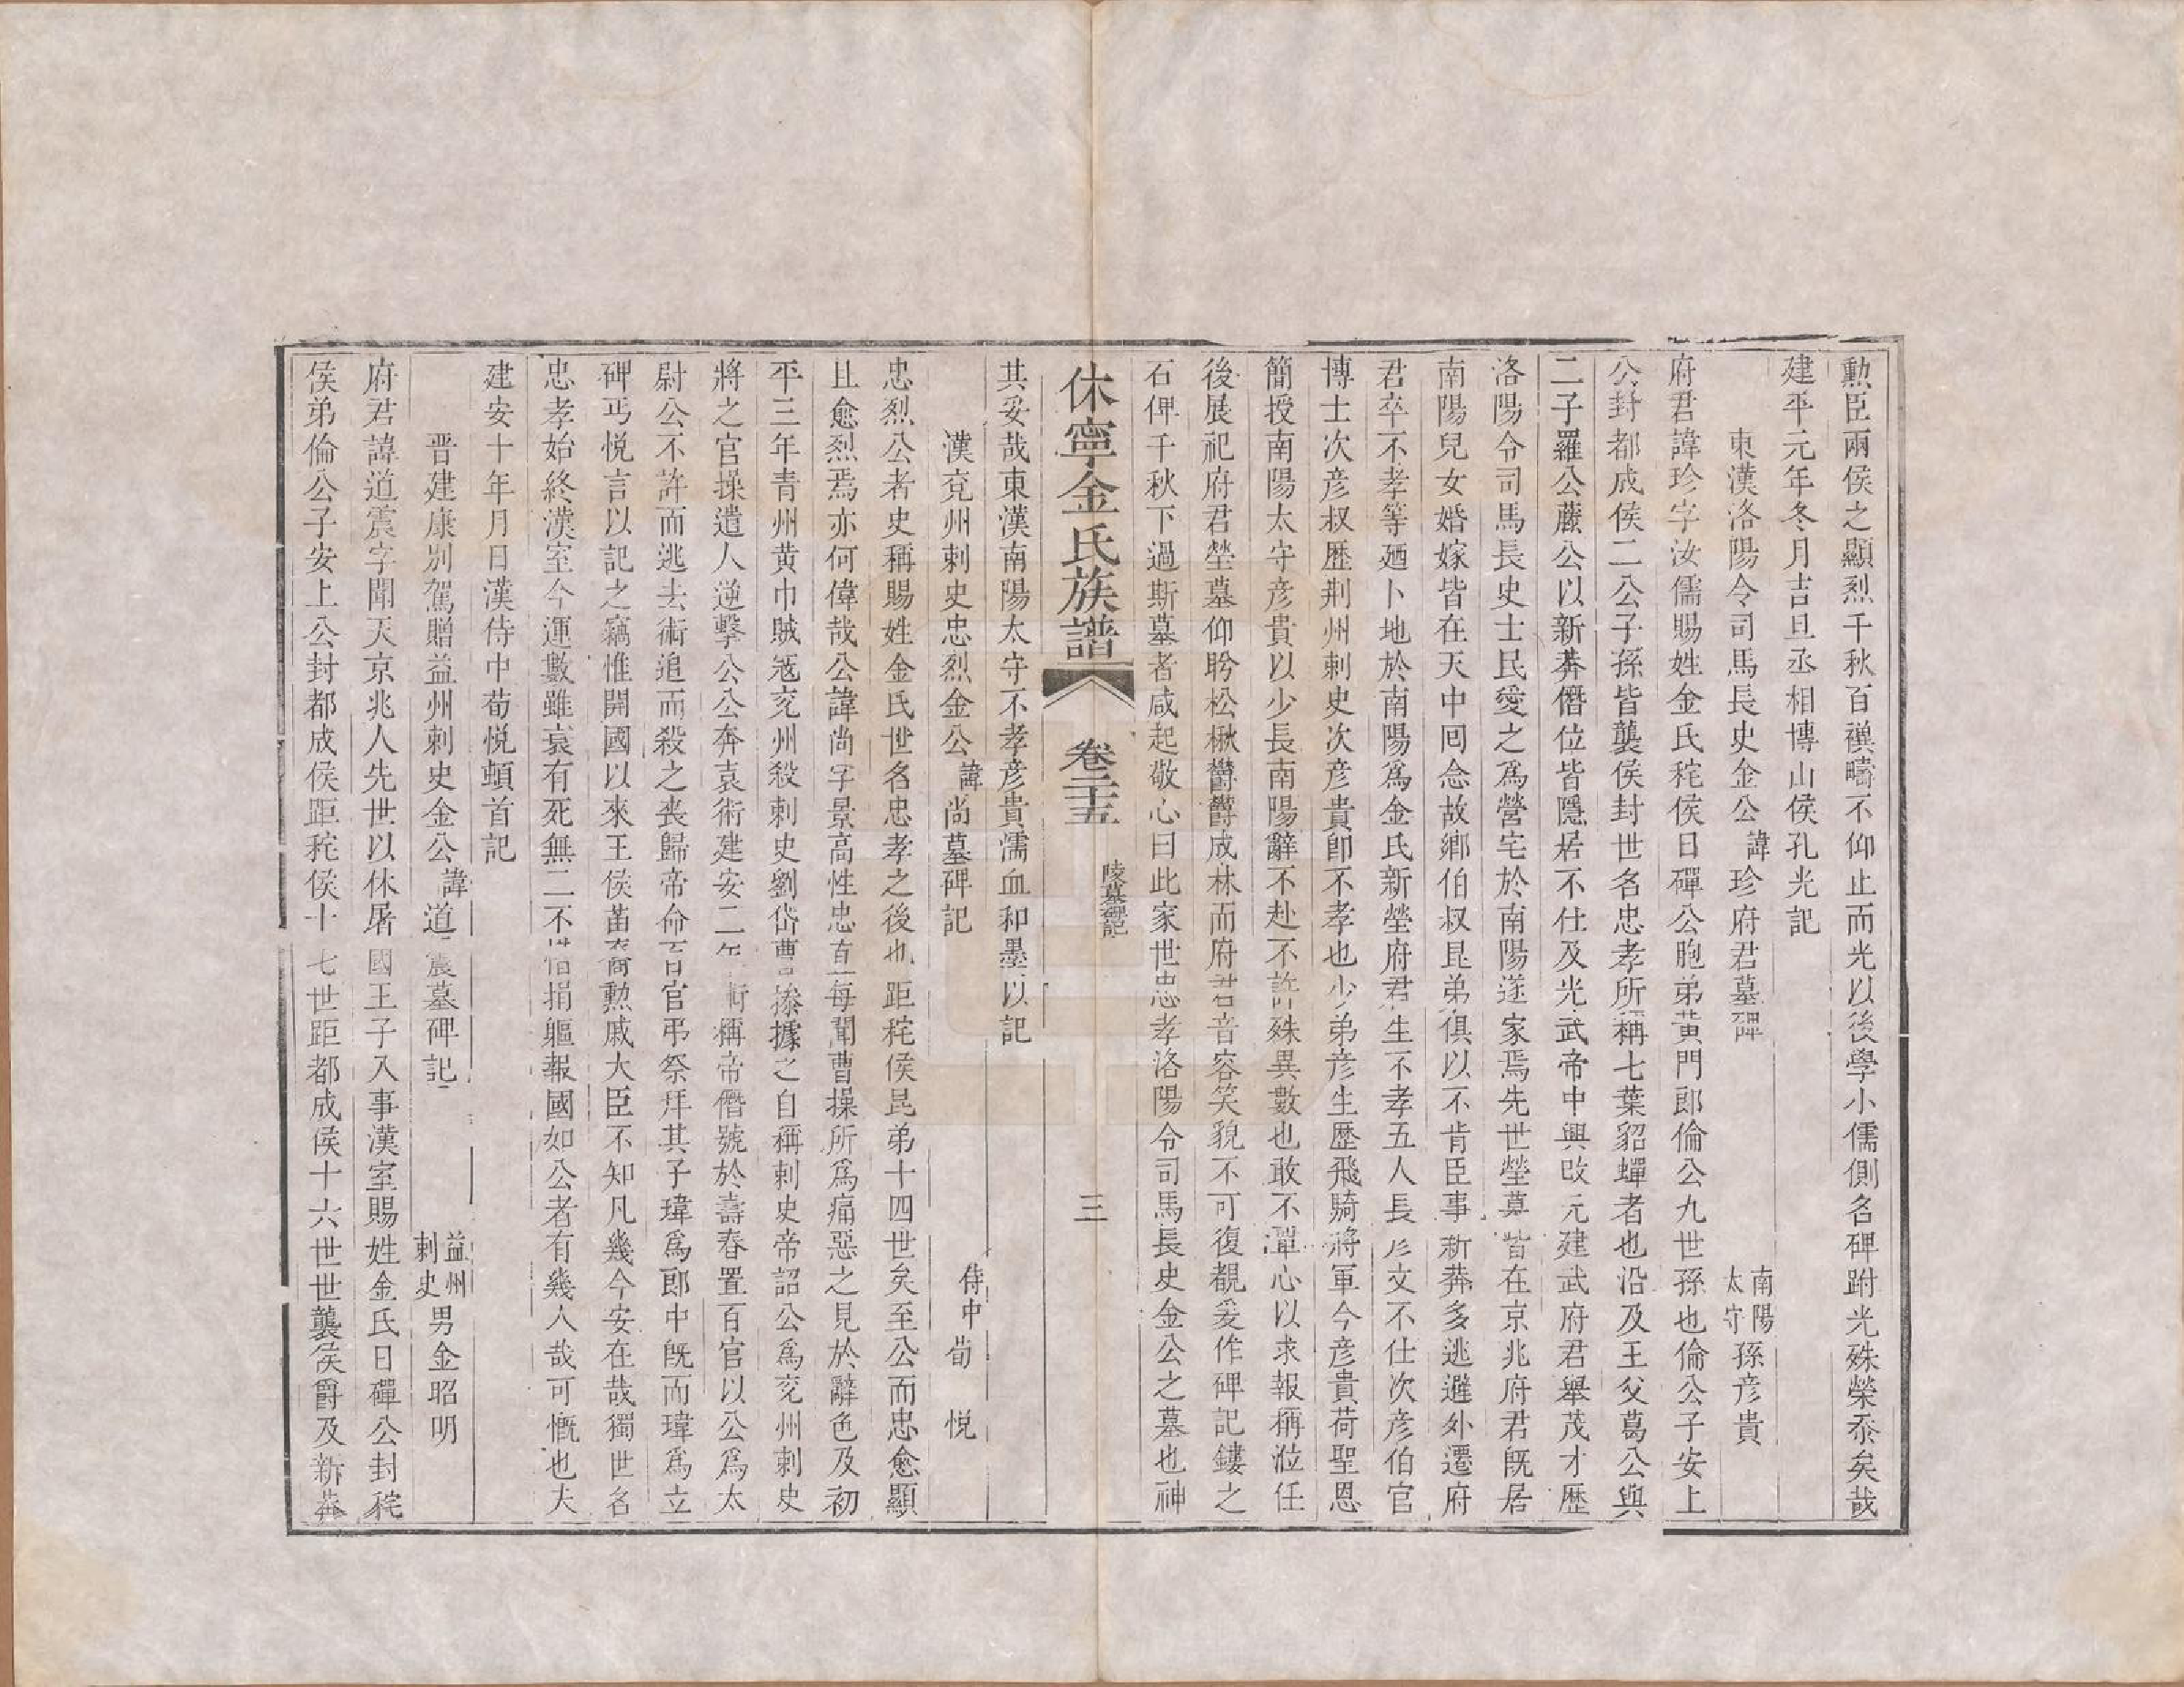 勲臣兩侯之顯烈千秋百禩疇不仰止而光以後學小儒側名碑跗光殊榮忝矣哉
建平元年冬月吉旦丞相博山侯孔光記
東漢洛陽令司馬長史金公諱珍府君墓碑 南陽太守孫彦貴
府君諱珍字汝儒賜姓金氏秺侯日磾公胞弟黄門郎倫公九世孫也倫公子安上
公封都成侯二公子孫皆襲侯封世名忠孝所稱七葉貂蟬者也沿及王父葛公與
二子羅公藤公以新莽僭位皆隱居不仕及光武帝中興改元建武府君舉茂才歷
洛陽令司馬長史士民愛之爲營宅於南陽遂家焉先世塋墓皆在京兆府君既居
南陽兒女婚嫁皆在天中回念故鄉伯叔昆弟俱以不肯臣事新莽多逃避外遷府
君卒不孝等廼卜地於南陽爲金氏新塋府君生不孝五人長彦文不仕次彦伯官
博士次彦叔歷荆州刺史次彦貴卽不孝也少弟彦生歷飛騎將軍今彦貴荷聖恩
簡授南陽太守彦貴以少長南陽辭不赴不許殊異數也敢不殫心以求報稱涖任
後展祀府君塋墓仰盻松楸欝欝成林而府君音容笑貌不可復覩爰作碑記鏤之
石俾千秋下過斯墓者咸起敬心曰此家世忠孝洛陽令司馬長史金公之墓也神
休寧金氏族譜 卷二十五 陵墓碑記 三
其妥哉東漢南陽太守不孝彦貴濡血和墨以記
漢兗州刺史忠烈金公諱尚墓碑記 侍中荀悦
忠烈公者史稱賜姓金氏世名忠孝之後也距秺侯昆弟十四世矣至公而忠愈顯
且愈烈焉亦何偉哉公諱尚字景高性忠直每聞曹操所爲痛惡之見於辭色及初
平三年青州黄巾賊寇兗州殺刺史劉岱曹操據之自稱刺史帝詔公爲兗州刺史
將之官操遣人逆擊公公奔袁術建安二年術稱帝僭號於壽春置百官以公爲太
尉公不許而逃去術追而殺之丧歸帝命百官弔祭拜其子瑋爲郎中既而瑋爲立
碑丐悦言以記之竊惟開國以來王侯苗裔勲戚大臣不知凡幾今安在哉獨世名
忠孝始終漢室今運數雖衰有死無二不惜捐軀報國如公者有幾人哉可慨也夫
建安十年月日漢侍中荀悦頓首記
晋建康別駕贈益州刺史金公諱道震墓碑記 益州刺史男金昭明
府君諱道震字聞天京兆人先世以休屠國王子入事漢室賜姓金氏日磾公封秺
侯弟倫公子安上公封都成侯距秺侯十七世距都成侯十六世世襲侯爵及新莽